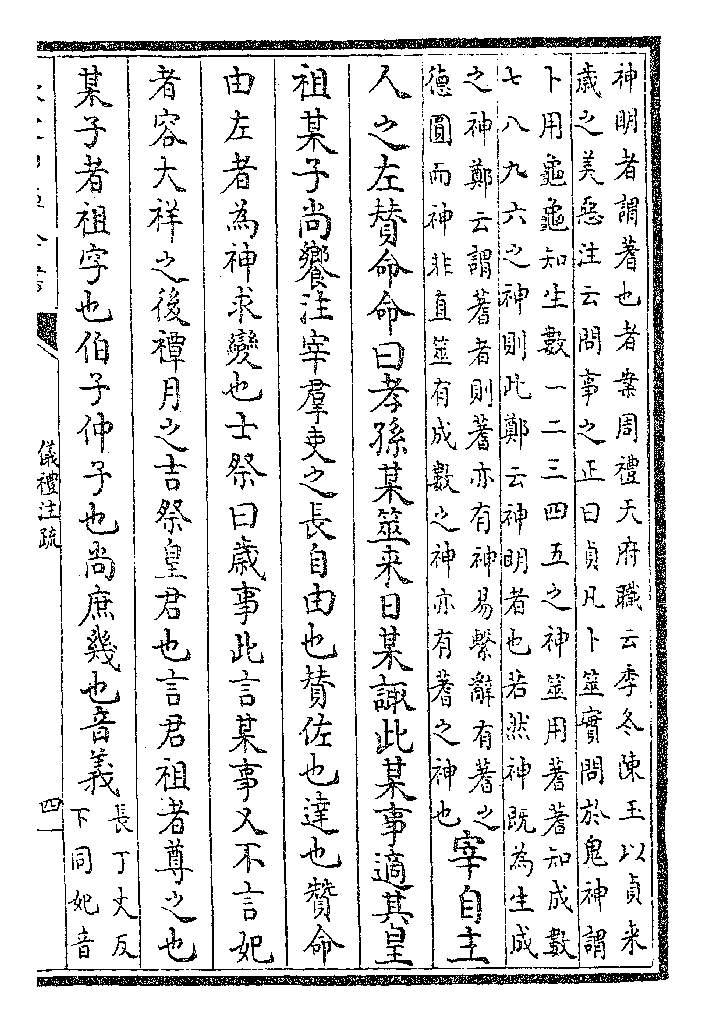 神明者謂蓍也者案周禮天府職云季冬陳玉以貞来
歲之美惡注云問事之正曰貞凡卜筮實問於鬼神謂
卜用龜龜知生數一二三四五之神筮用蓍蓍知成數
七八九六之神則此鄭云神明者也若然神既為生成
之神鄭云謂蓍者則蓍亦有神易繫辭有蓍之
德圓而神非直筮有成數之神亦有蓍之神也
宰自主
人之左賛命命曰孝孫某筮来日某諏此某事適其皇
祖某子尚饗注宰羣吏之長自由也賛佐也達也贊命
由左者為神求變也士祭曰歲事此言某事又不言妃
者容大祥之後禫月之吉祭皇君也言君祖者尊之也
某子者祖字也伯子仲子也尚庶幾也音義
長丁丈反
下同妃音
儀禮注疏
四一